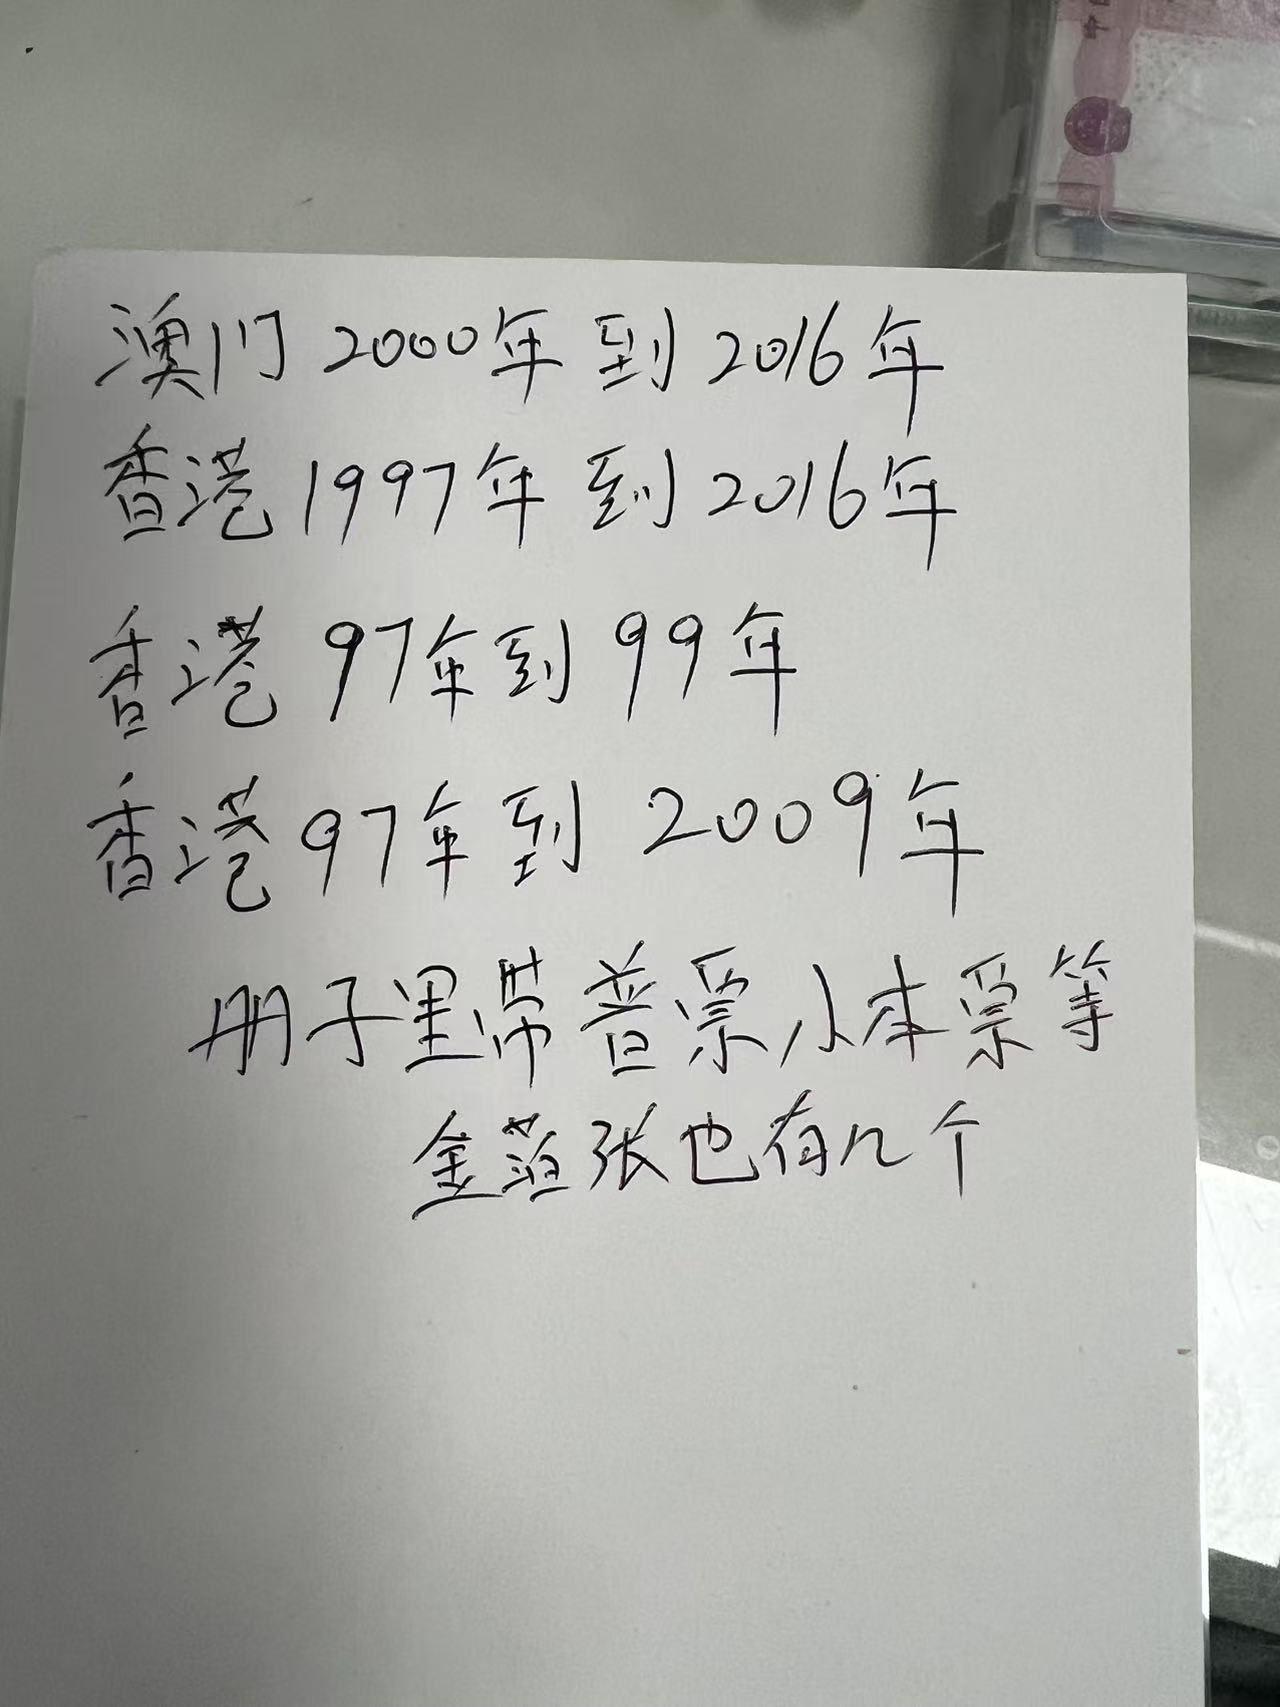 澳门 2000年到 2016年
香港 1997年到 2016年
香港 97年到 99年
香港 97年到 2009年
册子里带普票小本票等
金箔张也有几个